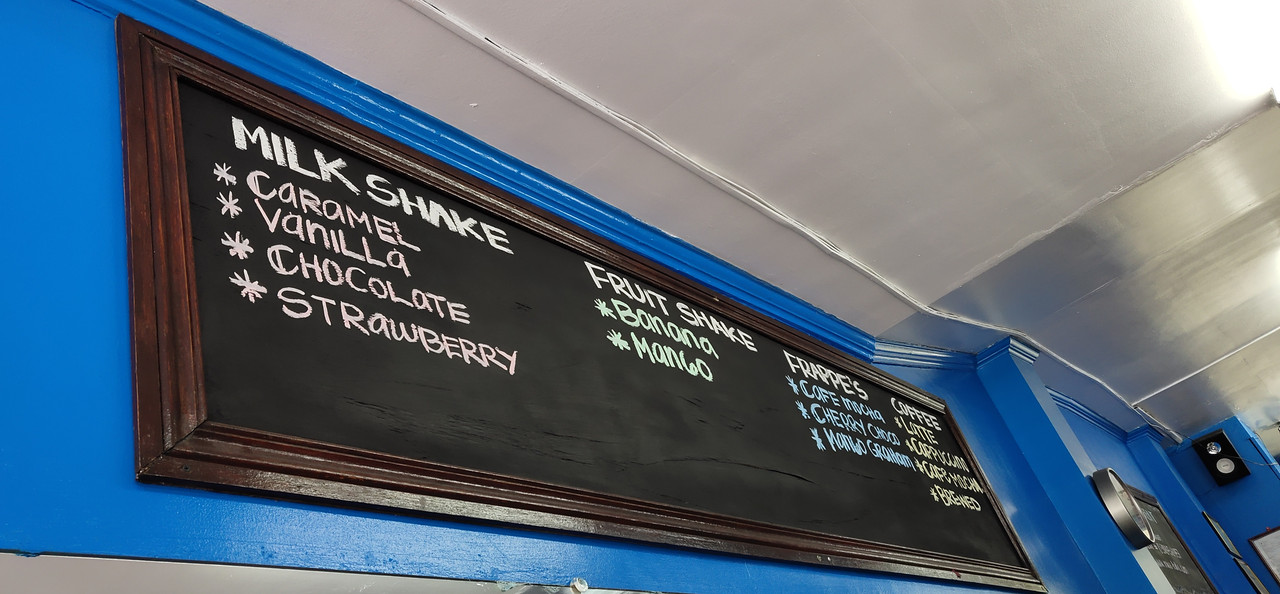 MILK SHAKE
* CARAMEL
* VANILLA
* CHOCOLATE
* STRAWBERRY
FRUIT SHAKE
* BANANA
* MANGO
FRAPPE'S
* CAFE MOCHA
* CHERRY CHOCO
* MANGO GRAHAM
COFFEE
* LATTE
* CAPPUCCINI
* CAFE MOCHA
* BREWED